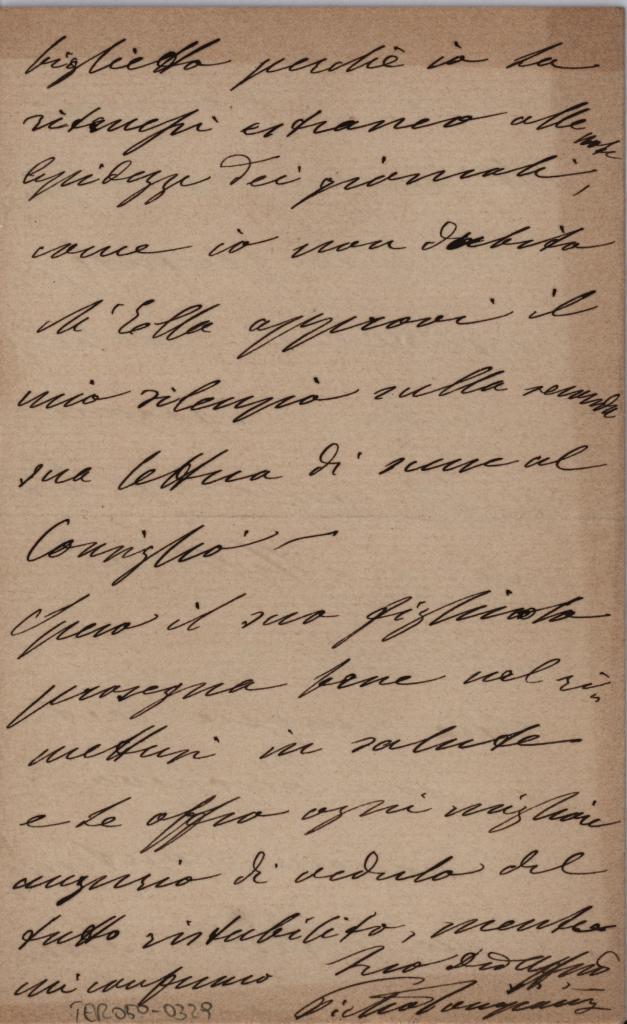 biglietto perchè io La
ritenessi estraneo alle note
lepidezze dei giornali,
come io non dubito
ch'Ella approvi il
mio silenzio sulla seconda
sua lettura di me al
Consiglio —
Spero il suo figliuolo
prosegua bene nel ri-
mettersi in salute
e Le offro ogni migliore
augurio di vederlo del
tutto ristabilito, mentre
mi confermo Suo Dev Affmo
TER050-0329